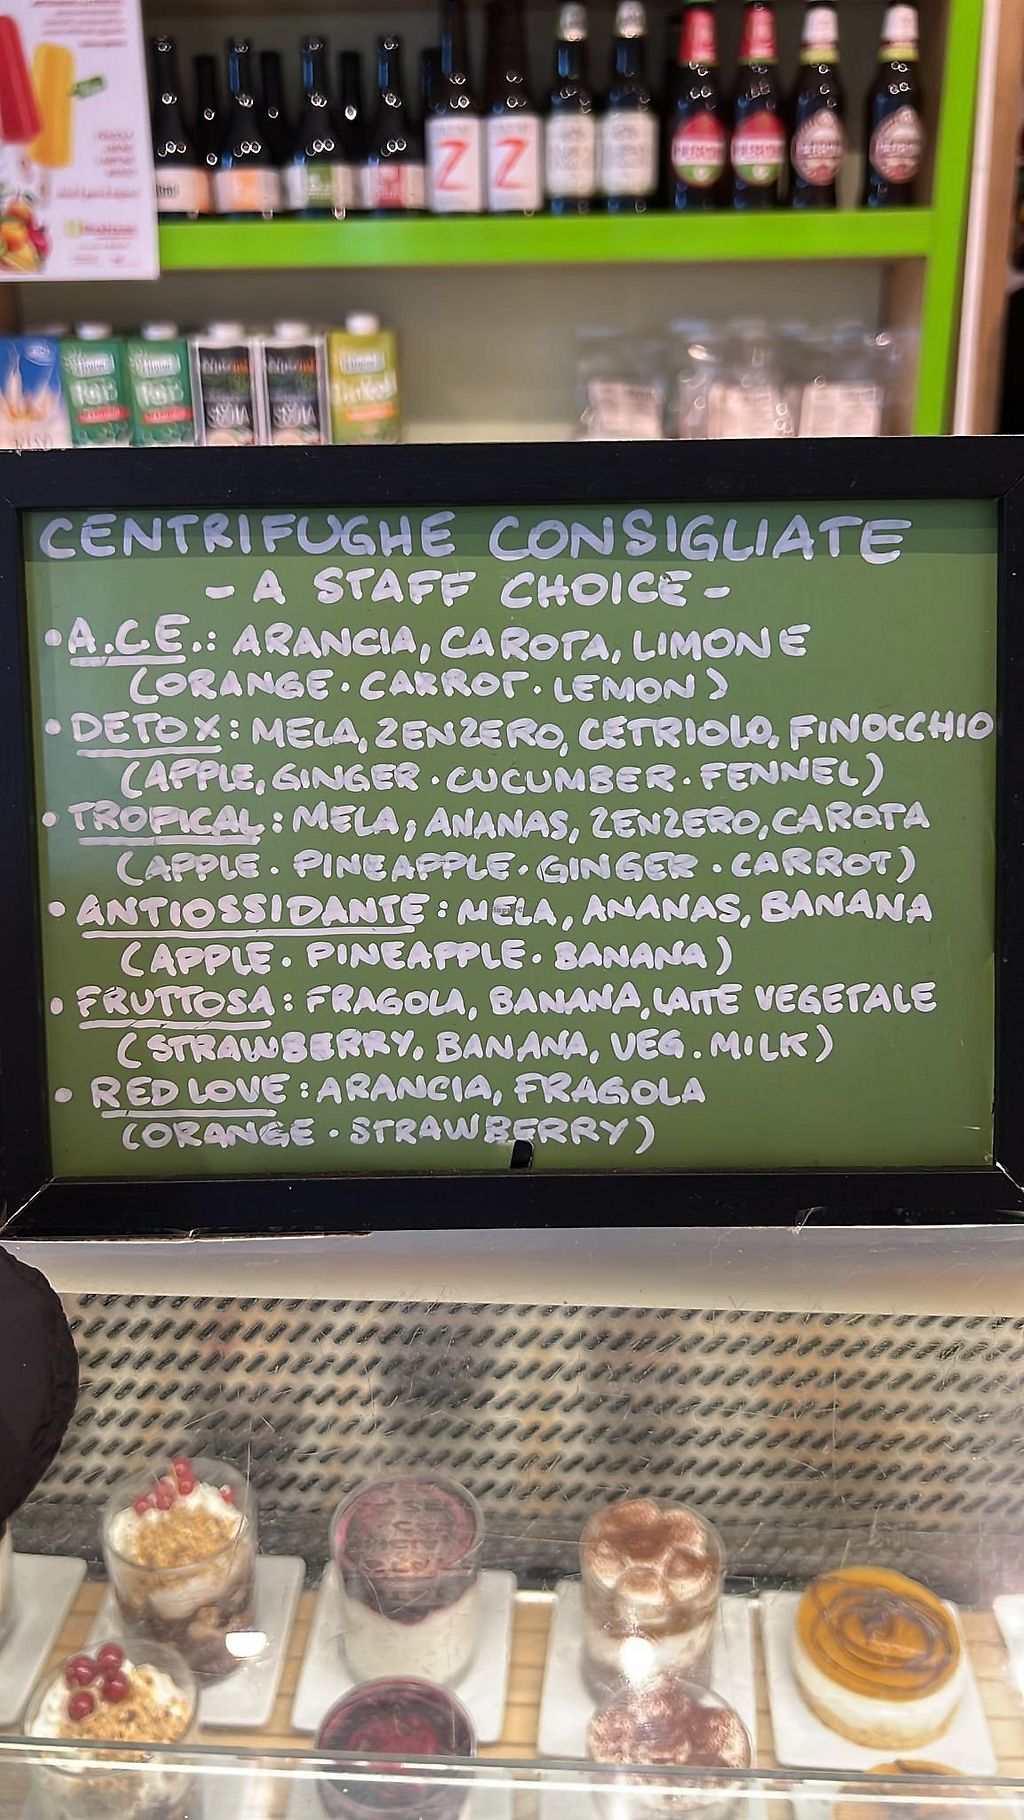 Z
Z
CENTRIFUGHE CONSIGLIATE
- A STAFF CHOICE -
• A.C.E.: ARANCIA, CAROTA, LIMONE
(ORANGE · CARROT · LEMON)
• DETOX: MELA, ZENZERO, CETRIOLO, FINOCCHIO
(APPLE, GINGER · CUCUMBER · FENNEL)
• TROPICAL: MELA, ANANAS, ZENZERO, CAROTA
(APPLE · PINEAPPLE · GINGER · CARROT)
• ANTIOSSIDANTE: MELA, ANANAS, BANANA
(APPLE · PINEAPPLE · BANANA)
• FRUTTOSA: FRAGOLA, BANANA, LATTE VEGETALE
(STRAWBERRY, BANANA, VEG. MILK)
• RED LOVE: ARANCIA, FRAGOLA
(ORANGE · STRAWBERRY)